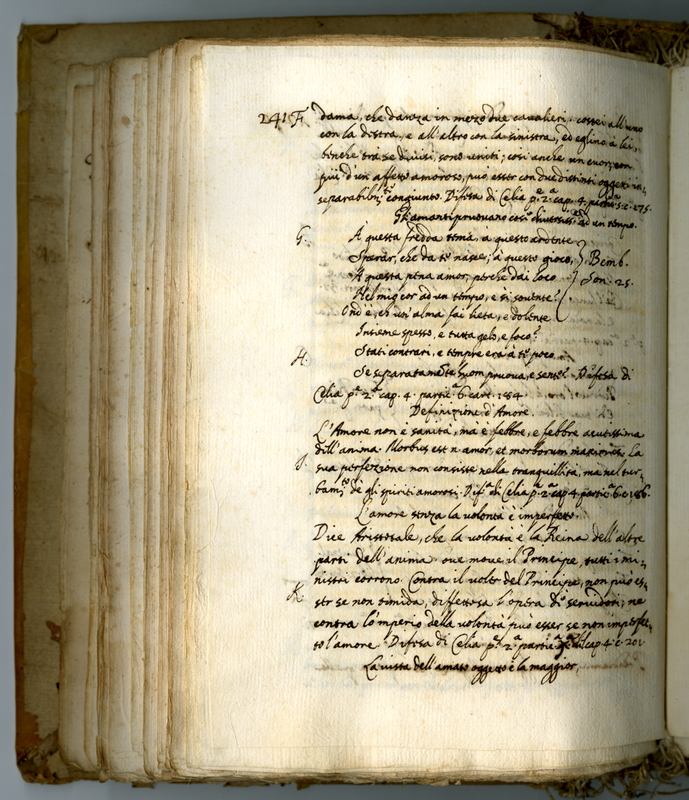 241 F. dama, che danza in mezzo due cavalieri, costei all'uno
con la destra, e all'altro con la sinistra, ed eglino à lei,
benche trà se divisi, sono uniti; così anche un cuor, con
più d'un affetto amoroso, può esser con due distinti oggetti in-
separabilm.te congiunto. Difesa di Celia p.e 2.a cap. 4. c. 275.
Gli amanti pruovano cose diverse ad un tempo.
G. A questa fredda tema, a questo ardente
Sperar, che da te nasce; à questo gioco, } Bemb.
A questa pena amor, perche dai loco } Son. 25.
Nel mio cor ad un tempo, e sì sovente?
Ond'è, ch'un'alma fai lieta, e dolente
Insieme spesso, e tutta gelo, e foco?
H. Stati contrari, e tempre era à te poco
Se separatamente huom pruova, e sente? Difesa di
Celia p.e 2.a cap. 4. partic.a 6. cart. 184
Definizione d'Amore.
L'Amore non è sanità, ma è febbre, e febbre acutissima
dell'anima. Morbus est n. amor, et morborum maximus. La
I. sua perfezzione non consiste nella tranquillità, ma nel tur-
bam.to de gli spiriti amorosi. Dif.a di Celia p.e 2.a cap. 4. partic.a 6. c. 186.
L'amore senza la volontà è imperfetto.
Dice Aristotale, che la volontà è la Reina dell'altre
parti dell'anima. ove move il Principe, tutti i mi-
nistri corrono. Contra il voler del Principe, non può es-
K. ser se non timida, diffettosa l'opera de' servidori; ne
contra l'imperio della volontà può esser se non imperfet-
to l'amore. Difesa di Celia p.e 2.a partic.a cap. 4. c. 201
La vista dell'amato oggetto è la maggior,